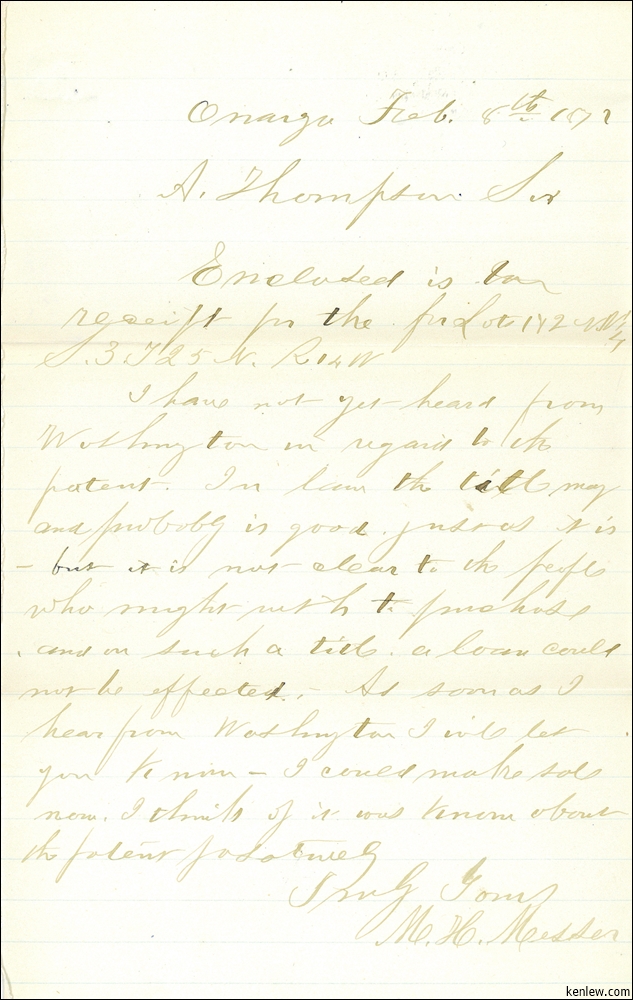 Onarga Feb. 8th 187
A. Thompson Sir
Enclosed is tax
receipt for the for Lots 1 & 2 NW 1/4
S. 3 T 25 N. R 14 W
I have not yet heard from
Washington in regard to the
patent. In law the title may
and probably is good. just as it is
- but it is not clear to the people
who might wish to purchase
. and on such a title. a loan could
not be effected. - As soon as I
hear from Washington I will let
you know - I could make sale
now. I think if it was known about
the patent positively
Truly Yours
M. H. Messer
kenlew.com